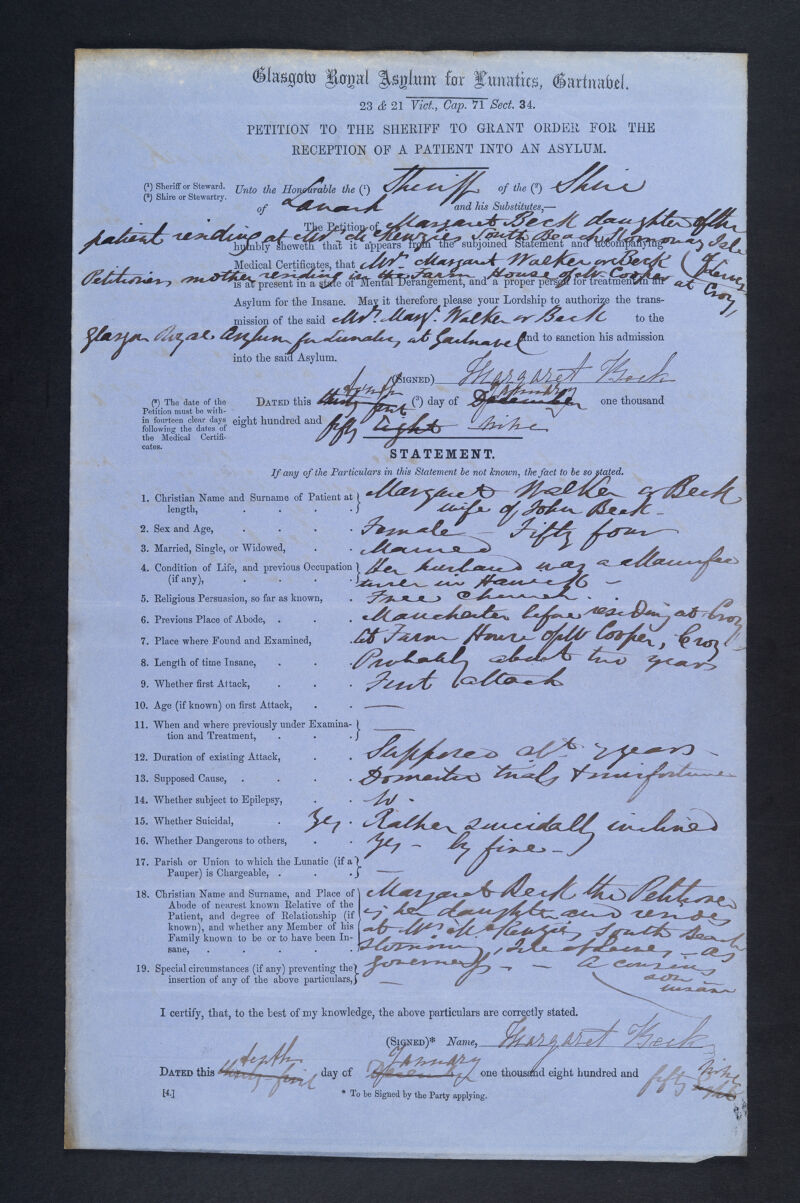 Glasgow Royal Asylum for Lunatics, Gartnabel.
23 & 21 Vict., Cap. 71 Sect. 34.
PETITION TO THE SHERIFF TO GRANT ORDER FOR THE
RECEPTION OF A PATIENT INTO AN ASYLUM.
(¹) Sheriff or Steward.
(²) Shire or Stewartry.
Unto the Honourable the (¹) Sheriff of the (²) Shire
of Lanark and his Substitutes,—
The Petition of Margaret Beck daughter of the
patient residing at Mrs McKenzies South Beach Stornoway Isle
humbly sheweth that it appears from the subjoined Statement and accompanying
Medical Certificates, that Mrs Margaret Walker or Beck (Lewis
Petitioners mother residing in the Farm House of Mr Cooper at Croy,
is at present in a state of Mental Derangement, and a proper person for treatment in an
Asylum for the Insane. May it therefore please your Lordship to authorize the trans-
mission of the said Mrs. Margt. Walker or Beck to the
Glasgow Royal Asylum for Lunatics at Gartnavel and to sanction his admission
into the said Asylum.
(SIGNED) Margaret Beck
(³) The date of the
Petition must be with-
in fourteen clear days
following the dates of
the Medical Certifi-
cates.
tenth January
DATED this thirty first (³) day of December one thousand
eight hundred and fifty eight nine
STATEMENT.
If any of the Particulars in this Statement be not known, the fact to be so stated.
1. Christian Name and Surname of Patient at length, Margaret Walker or Beck
wife of John Beck -
2. Sex and Age, Female - Fifty four
3. Married, Single, or Widowed, Married
4. Condition of Life, and previous Occupation (if any), Her husband was a Manufac
turer in Hawick -
5. Religious Persuasion, so far as known, Free Church.
6. Previous Place of Abode, Manchester before residing at Croy
7. Place where Found and Examined, At Farm House of Mr Cooper, Croy
8. Length of time Insane, Probably about two years
9. Whether first Attack, First Attack
10. Age (if known) on first Attack, —
11. When and where previously under Examina-
tion and Treatment, —
12. Duration of existing Attack, Supposed abt 2 years -
13. Supposed Cause, Domestic trials & misfortune
14. Whether subject to Epilepsy,
15. Whether Suicidal, Yes. Rather suicidally inclined
16. Whether Dangerous to others, Yes - by fire -
17. Parish or Union to which the Lunatic (if a
Pauper) is Chargeable, —
18. Christian Name and Surname, and Place of
Abode of nearest known Relative of the
Patient, and degree of Relationship (if
known), and whether any Member of his
Family known to be or to have been In-
sane,
Margaret Beck the Petitioner
is her daughter and resides
at Mrs McKenzies South Beach
Stornoway, Isle of Lewis - as
governess - - A cousins
son
insane
19. Special circumstances (if any) preventing the
insertion of any of the above particulars, —
I certify, that, to the best of my knowledge, the above particulars are correctly stated.
(SIGNED)* Name, Margaret Beck
tenth January nine
DATED this thirty first day of December one thousand eight hundred and fifty eight
[4.] * To be Signed by the Party applying.